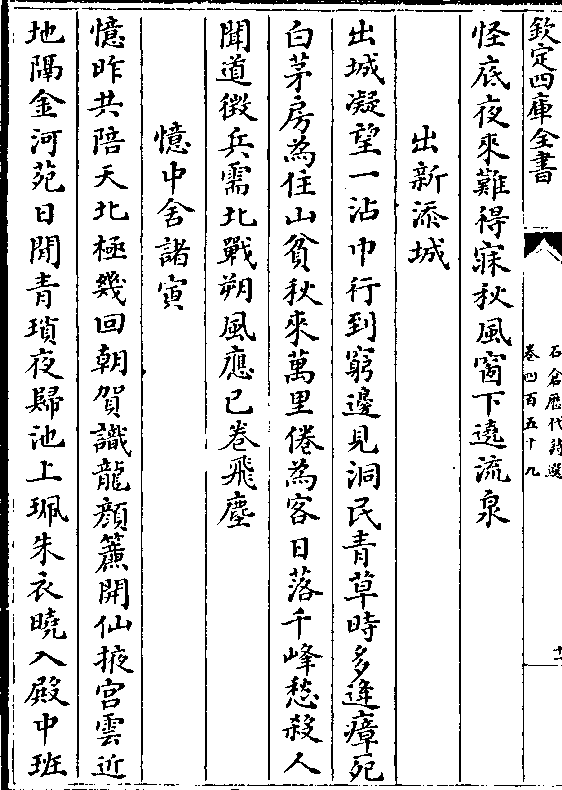 欽定四庫全書
石倉歷代詩選
卷四百五十九
十一
怪底夜來難得寐秋風窗下遶流泉
出新添城
出城凝望一沾巾行到窮邊見洞民青草時多逢瘴死
白茅房為住山貧秋來萬里倦為客日落千峰愁殺人
聞道徴兵需北戰朔風應已卷飛塵
憶中舍諸寅
憶昨共陪天北極幾回朝賀識龍顔簾開仙掖宫雲近
地隔金河苑日閒青瑣夜歸池上珮朱衣曉入殿中班